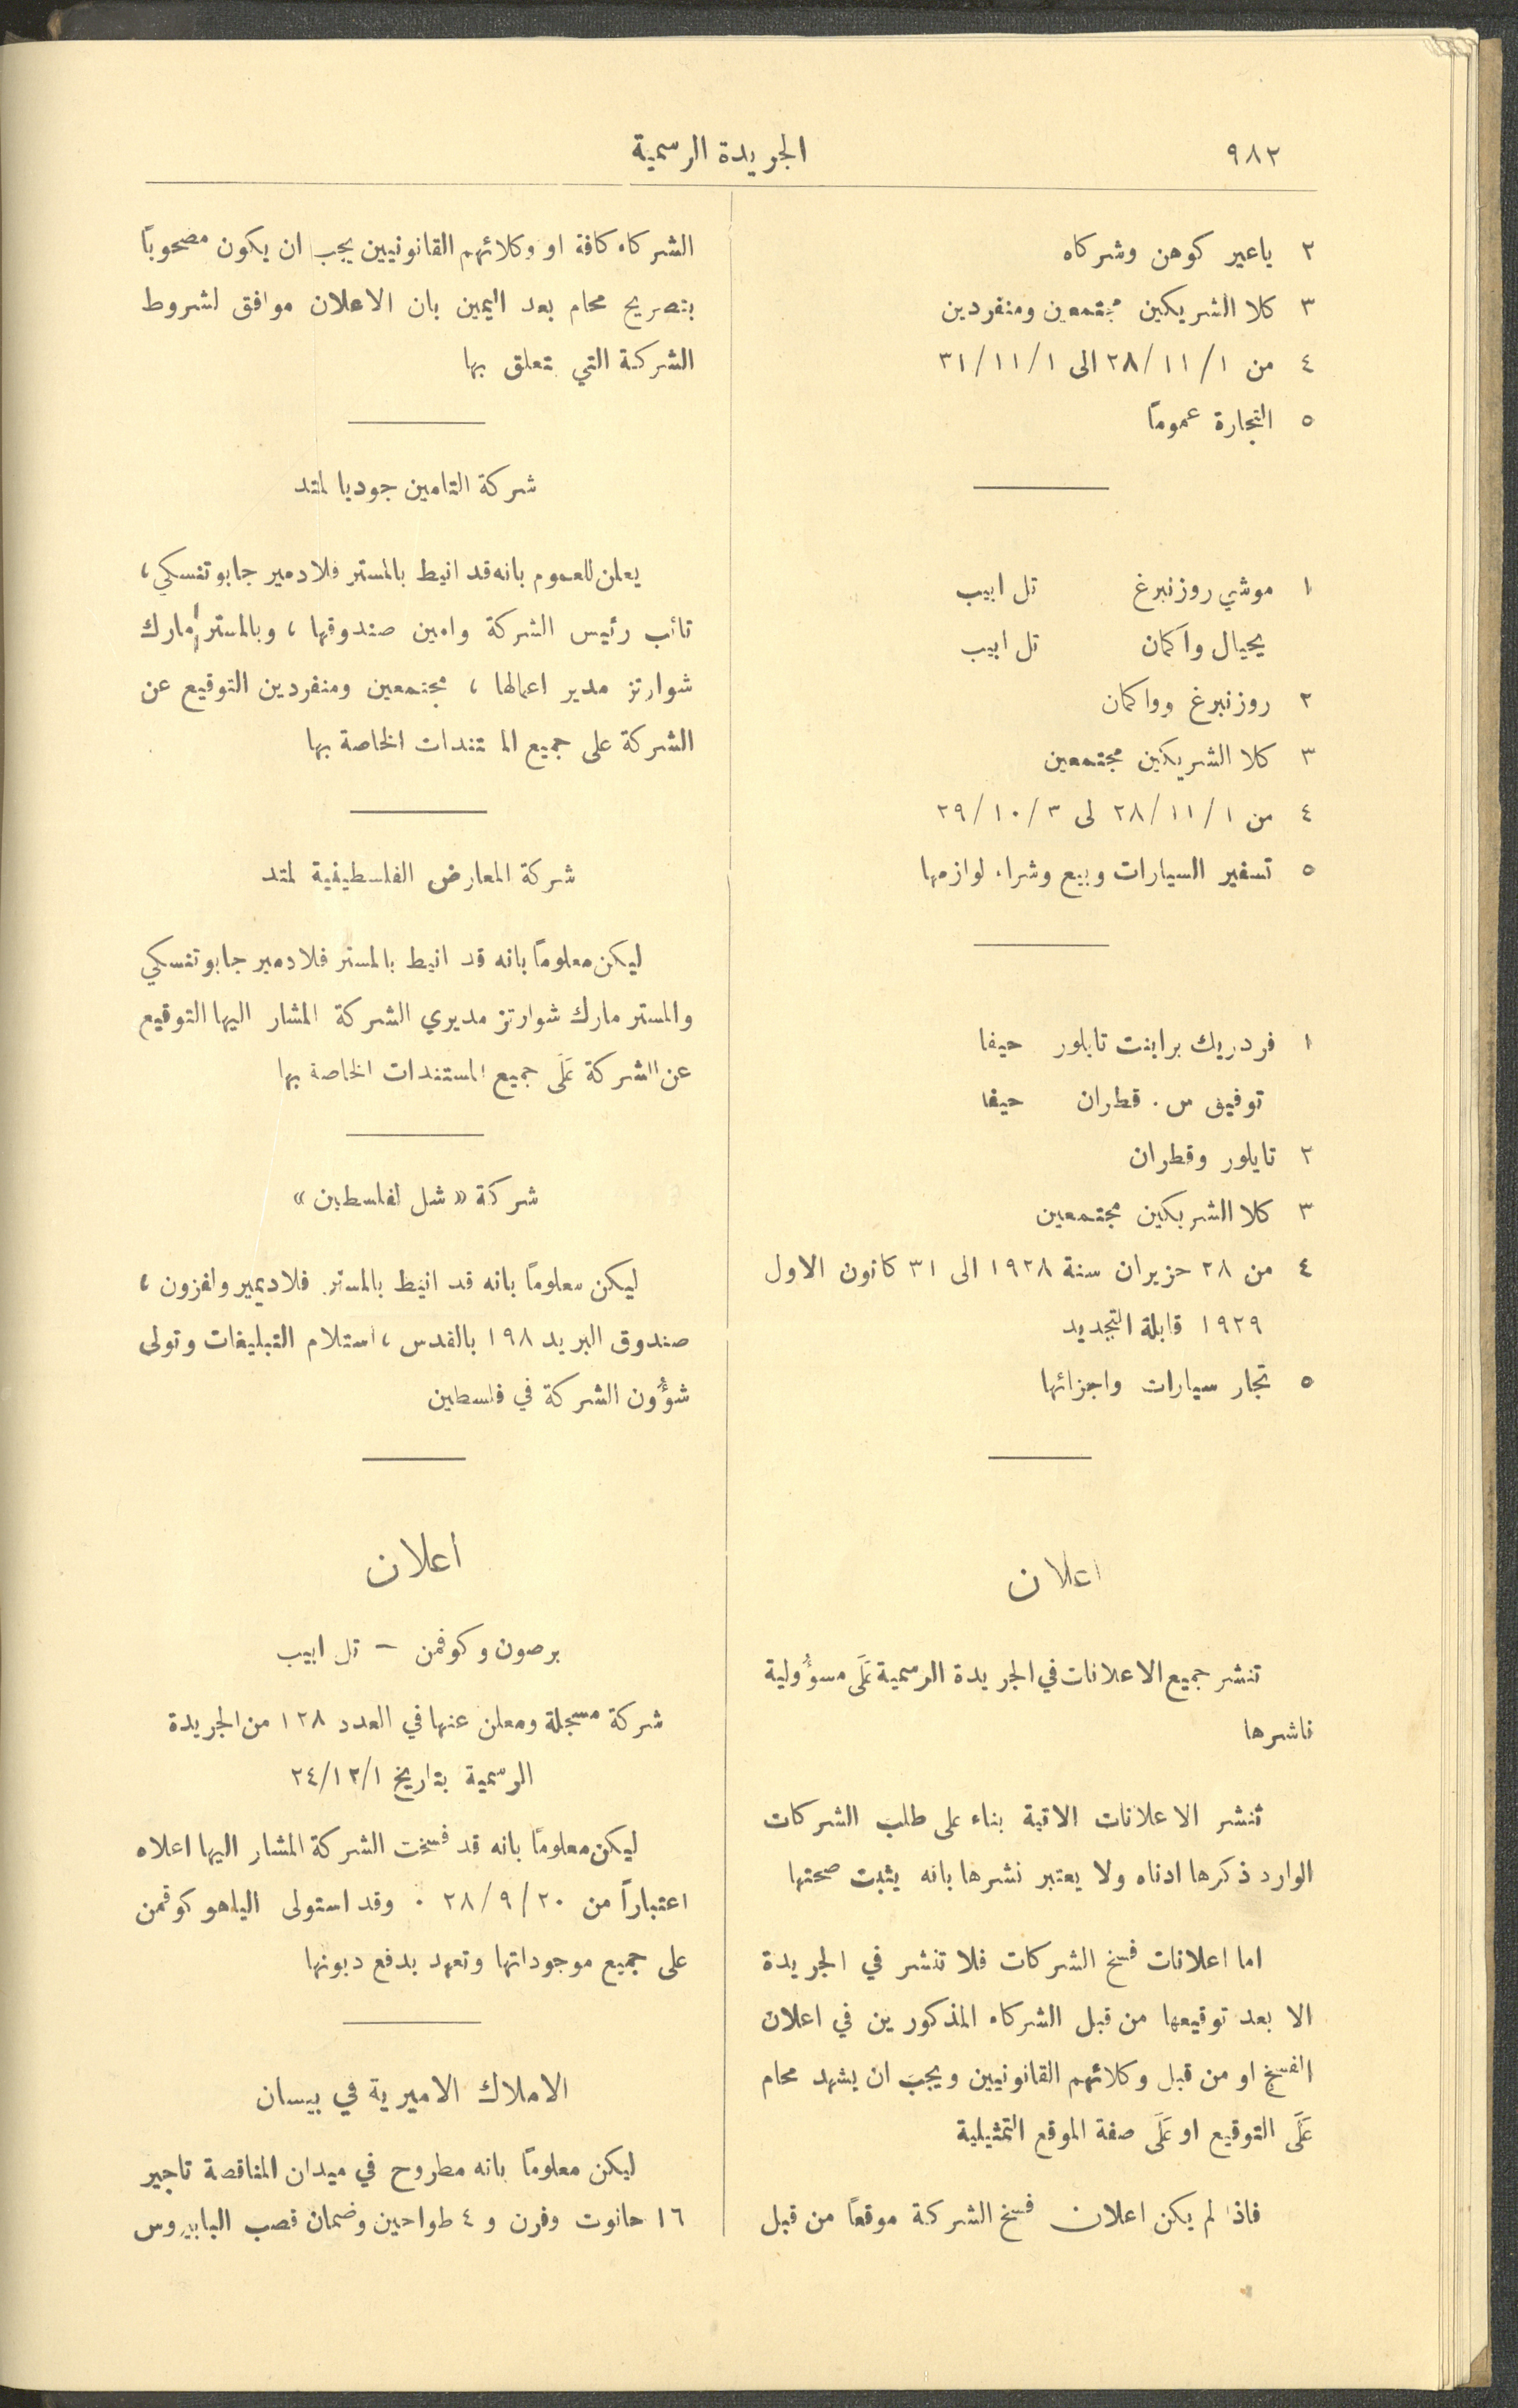 ٩٨٢
الجريدة الرسمية
٢ ياعير كوهن وشركاه
٣ كلا الشريكين مجتمعين ومنفردين
٤ من ٢٨/١١/١ الى ٣١/١١/١
٥ التجارة عموماً
١ موشي روزنبرغ تل ابيب
يحيال واكمان تل ابيب
٢ روزنبرغ وواكمان
٣ كلا الشريكين مجتمعين
٤ من ٢٨/١١/١ لى ٢٩/١٠/٣
٥ تسفير السيارات وبيع وشراء لوازمها
١ فردريك براينت تايلور حيفا
توفيق س. قطران حيفا
٢ تايلور وقطران
٣ كلا الشريكين مجتمعين
٤ من ٢٨ حزيران سنة ١٩٢٨ الى ٣١ كانون الاول
١٩٢٩ قابلة التجديد
٥ تجار سيارات واجزائها
اعلان
تنشر جميع الاعلانات في الجريدة الرسمية عَلَى مسؤُولية
ناشرها
تنشر الاعلانات الاتية بناء على طلب الشركات
الوارد ذكرها ادناه ولا يعتبر نشرها بانه يثبت صحتها
اما اعلانات فسخ الشركات فلا تنشر في الجريدة
الا بعد توقيعها من قبل الشركاء المذكورين في اعلان
الفسخ او من قبل وكلائهم القانونيين ويجب ان يشهد محام
عَلَى التوقيع او عَلَى صفة الموقع التمثيلية
فاذا لم يكن اعلان فسخ الشركة موقعاً من قبل
الشركاء كافة او وكلائهم القانونيين يجب ان يكون مصحوباً
بتصريح محام بعد اليمين بان الاعلان موافق لشروط
الشركة التي يتعلق بها
شركة التامين جوديا لمتد
يعلن للعموم بانه قد انيط بالمستر فلادمير جابوتنسكي،
نائب رئيس الشركة وامين صندوقها، وبالمستر مارك
شوارتز مدير اعمالها، مجتمعين ومنفردين التوقيع عن
الشركة على جميع الم تندات الخاصة بها
شركة المعارض الفلسطينية لمتد
ليكن معلوماً بانه قد انيط بالمستر فلادمير جابوتنسكي
والمستر مارك شوارتز مديري الشركة المشار اليها التوقيع
عن الشركة عَلَى جميع المستندات الخاصة بها
شركة «شل لفلسطين»
ليكن معلوماً بانه قد انيط بالمستر فلاديمير وافزون،
صندوق البريد ١٩٨ بالقدس، استلام التبليغات وتولى
شؤُون الشركة في فلسطين
اعلان
برصون وكوفمن – تل ابيب
شركة مسجلة ومعلن عنها في العدد ١٢٨ من الجريدة
الرسمية بتاريخ ٢٤/١٢/١
ليكن معلوماً بانه قد فسخت الشركة المشار اليها اعلاه
اعتباراً من ٢٨/٩/٢٠ . وقد استولى الياهو كوفمن
على جميع موجوداتها وتعهد بدفع ديونها
الاملاك الاميرية في بيسان
ليكن معلوماً بانه مطروح في ميدان المناقصة تاجير
١٦ حانوت وفرن و ٤ طواحين وضمان قصب البابيروس